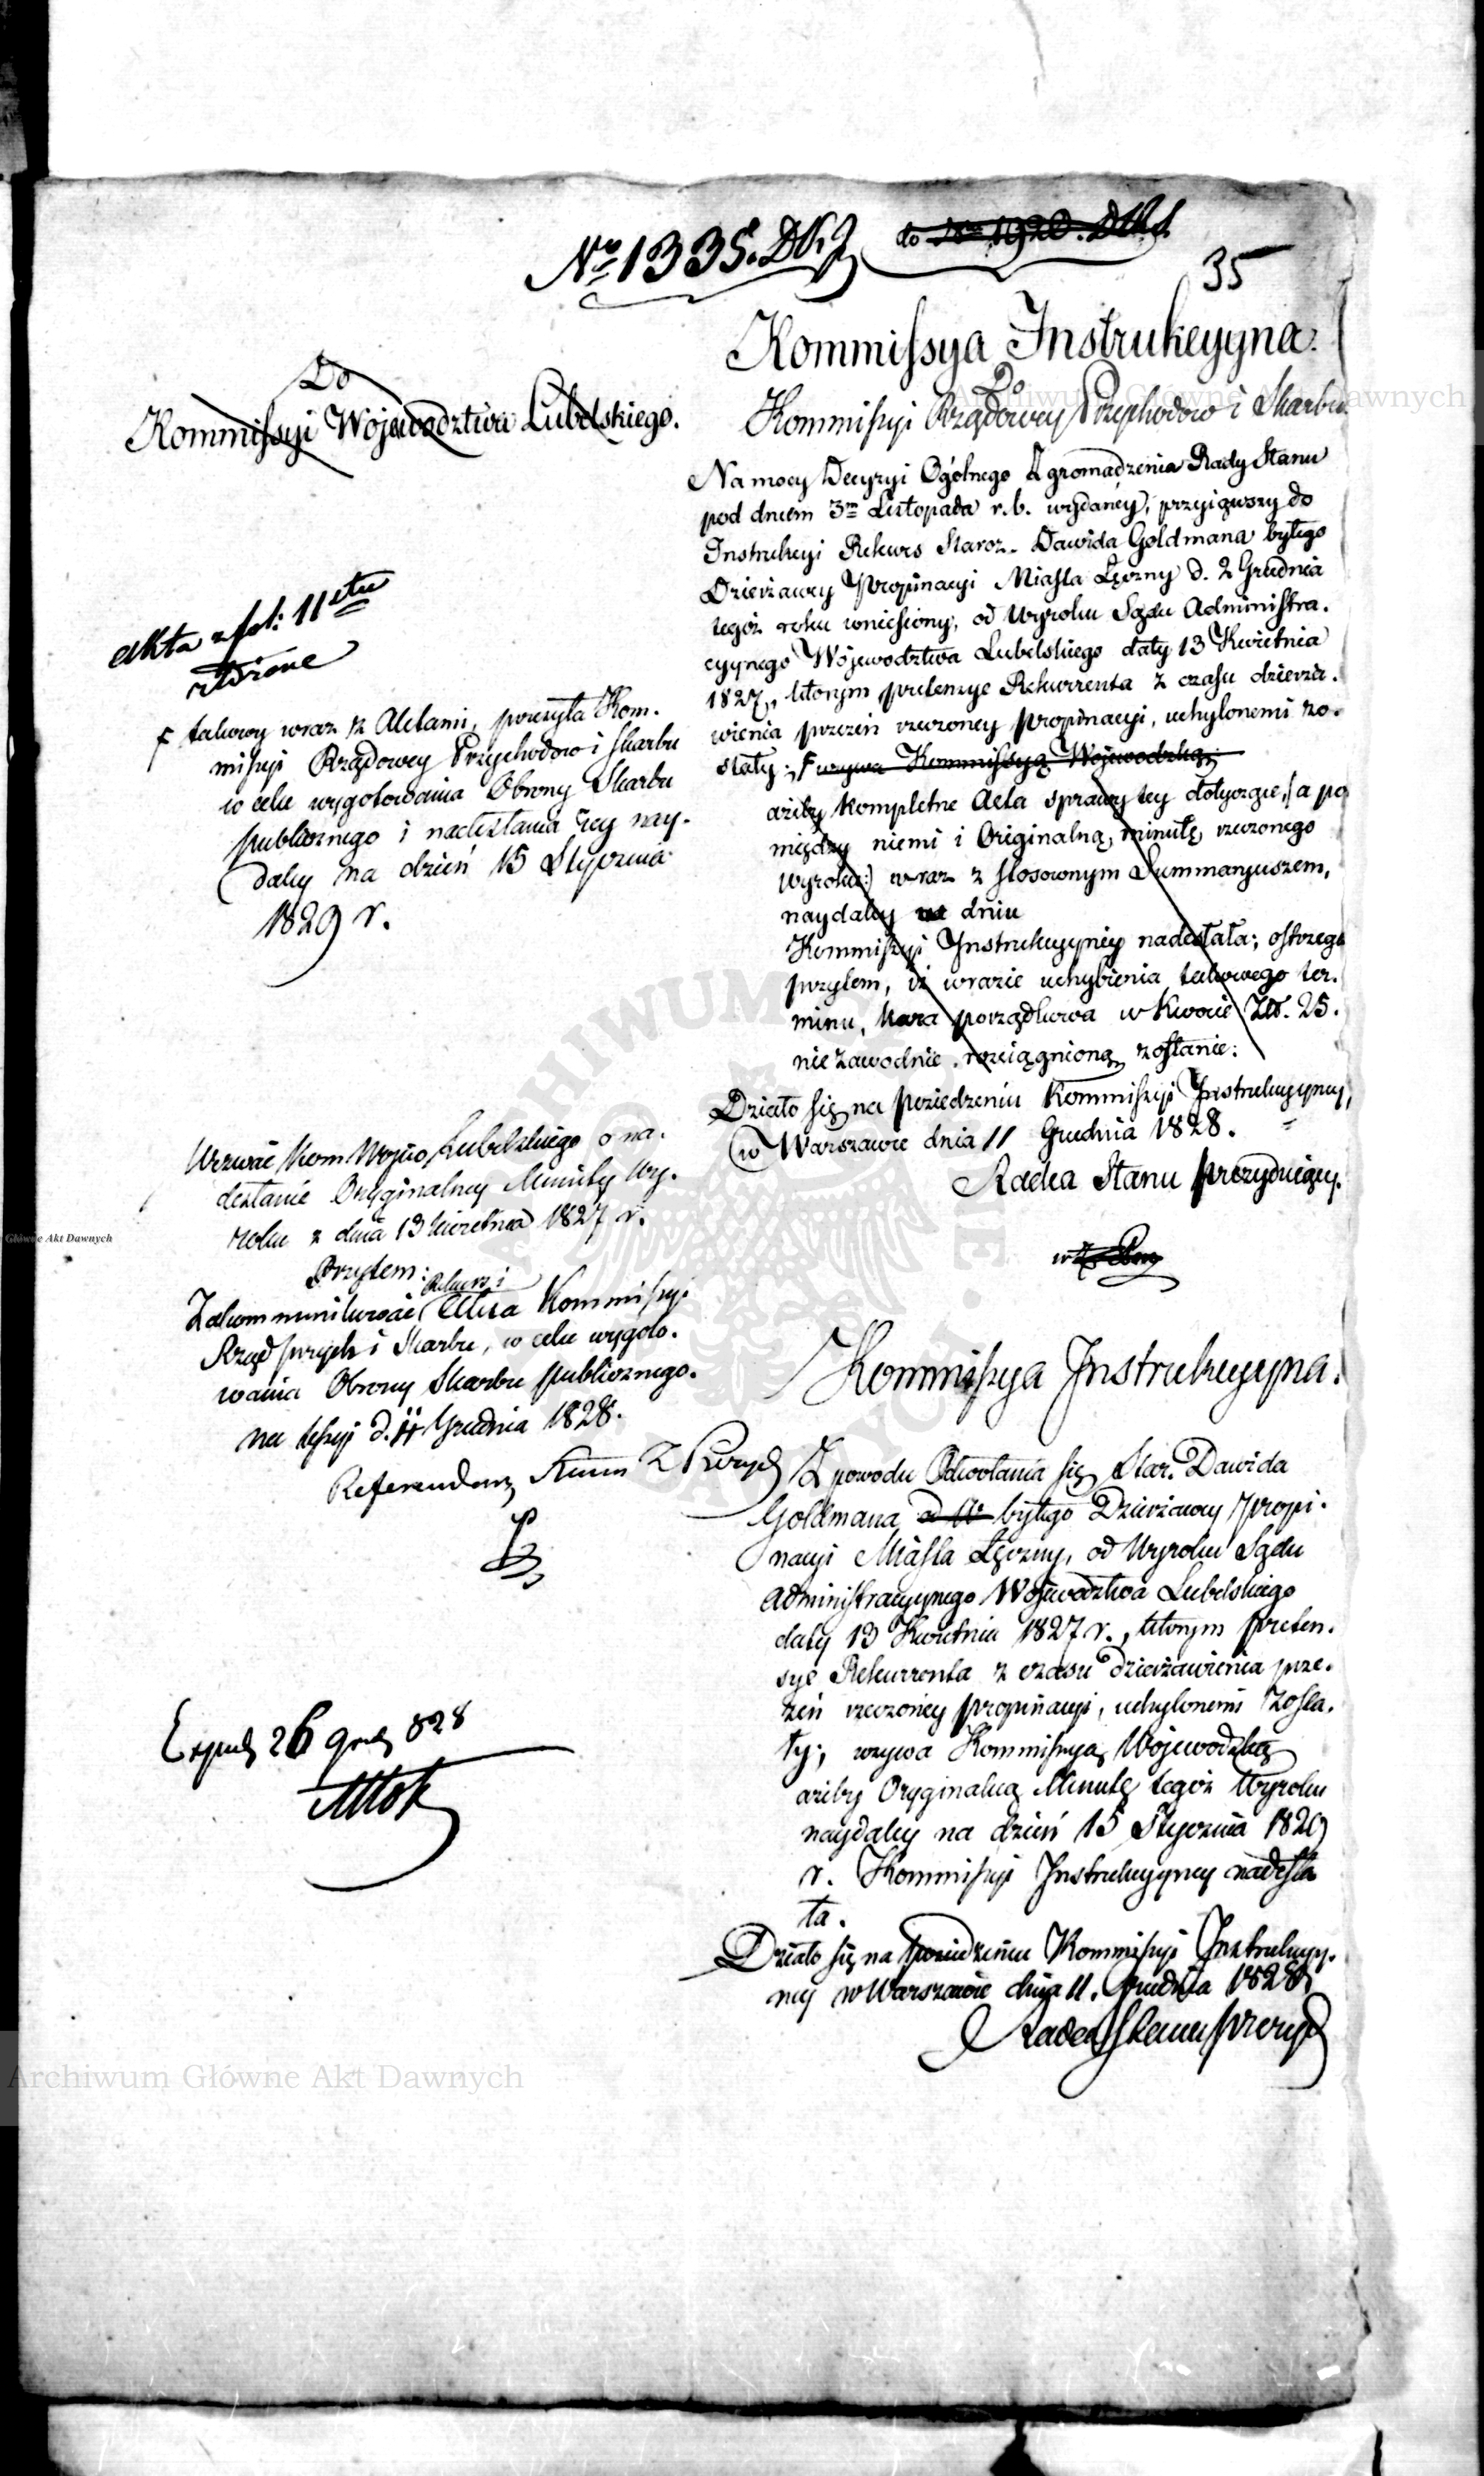 No 1335. DKJ do No 1920. DKJ.
35
Kommissya Instrukcyyna.
Do
Kommissyi Rządowey Przychodow i Skarbu.
Do
Kommissyi Wojewodztwa Lubelskiego.
Na mocy Decyzyi Ogólnego Zgromadzenia Rady Stanu
pod dniem 3m Listopada r. b. wydanéy, przyiąwszy do
Instrukcyi Rekurs Staroz. Dawida Goldmana byłego
Dzierżawcy Propinacyi Miasta Łęczny d. 2 Grudnia
tegóż roku wniesiony, od Wyroku Sądu Administra.
cyynego Wojewodztwa Lubelskiego daty 13 Kwietnia
1827, którym pretensye Rekurrenta z czasu dzierża.
wienia przezeń rzeczoney propinacyi, uchylonemi zo.
stały; F wzywa Kommissyą Wojewodzką;
ażeby kompletne Acta sprawy tey dotyczące, (a po
między niemi i Originalną minutę rzeczonego
wyroku:) wraz z stosownym Summaryuszem,
naydaley na dniu
Kommissyi Instrukcyynéy nadesłała; ostrzega
przytem, iż w razie uchybienia takowego ter.
minu, kara porządkowa w kwocie Zł. 25.
niezawodnie rozciągnioną zostanie.
Działo się na posiedzeniu Kommissyi Instrukcyyney,
w Warszawie dnia 11 Grudnia 1828.
Radca Stanu Prezyduiący.
akta z fol: 11
F takowy wraz z Aktami, przesyła Kom.
missyi Rządowey Przychodow i Skarbu
w celu wygotowania Obrony Skarbu
publicznego i nadesłania iey nay.
daley na dzień 15 Stycznia
1829 r.
Wezwać Kom Wojwo Lubelskiego o na.
desłanie Oryginalney Minuty Wy.
roku z dnia 13 Kwietnia 1827 r.
Przytem:
Rekurs i
Zakommunikować Akta Kommissyi
Rząd przych i Skarbu, w celu wygoto.
wania Obrony Skarbu publicznego.
na Sessyi d. 11 Grudnia 1828.
Referendarz Stanu
Kommissya Instrukcyyna.
Z powodu Odwołania się Star. Dawida
Goldmana od W byłego Dzierżawcy propi.
nacyi Miasta Łęczny, od Wyroku Sądu
Administracyynego Wojewodztwa Lubelskiego
daty 13 Kwietnia 1827 r., którym preten.
sye Rekurrenta z czasu dzierżawienia prze.
zeń rzeczonéy propinacyi, uchylonemi zosta.
ły; wzywa Kommissyą Wojewodzką
ażeby Oryginalną Minutę tegóż Wyroku
naydaley na dzień 15 Stycznia 1829
r. Kommissyi Instrukcyyney nadesła
ła.
Działo się na posiedzeniu Kommissyi Instrukcyy.
ney w Warszawie dnia 11. Grudnia 1828
Radca Stanu Prezyd
Exped 26 Grud 828
Archiwum Główne Akt Dawnych
Główne Akt Dawnych
Archiwum Główne Akt Dawnych